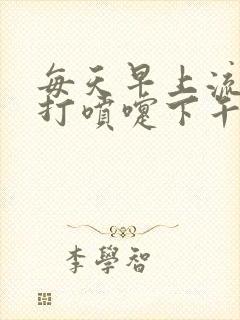 每天早上流
打噴嚏下午
李學智